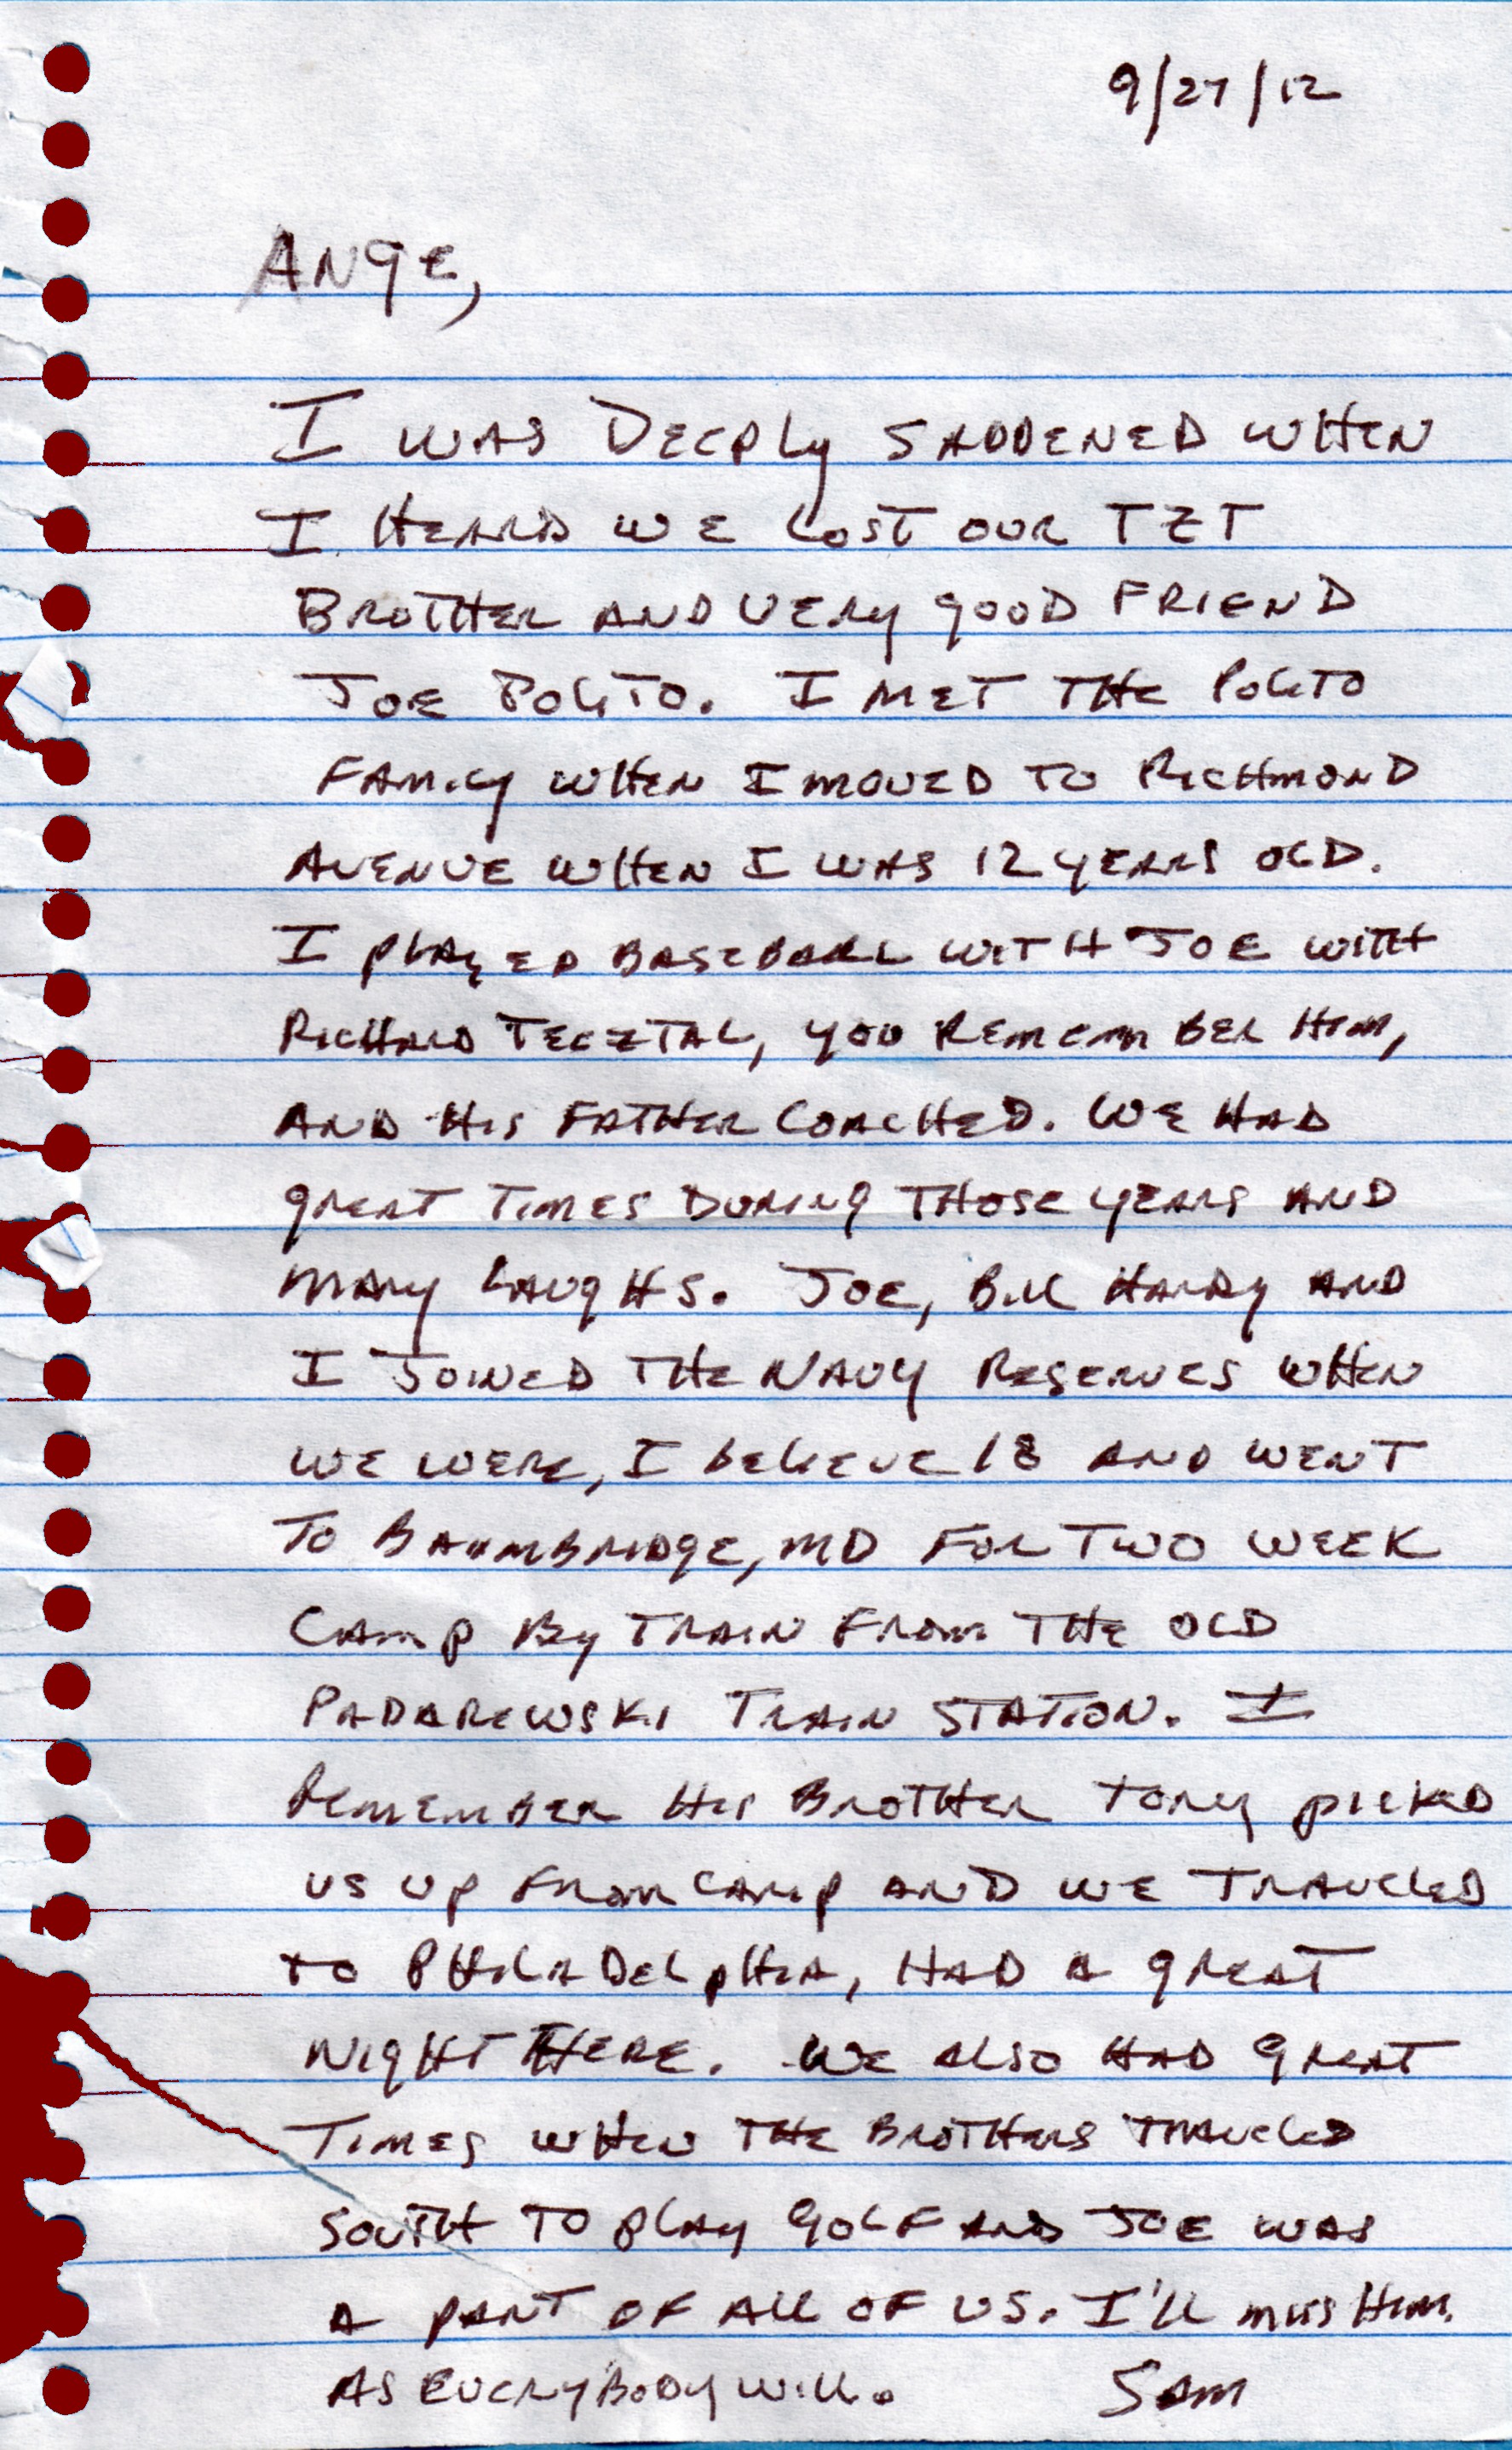 9/27/12
ANGE,
I WAS DEEPLY SADDENED WHEN
I HEARD WE LOST OUR TZT
BROTHER AND VERY GOOD FRIEND
JOE POLITO. I MET THE POLITO
FAMILY WHEN I MOVED TO RICHMOND
AVENUE WHEN I WAS 12 YEARS OLD.
I PLAYED BASEBALL WITH JOE WITH
RICHARD, YOU REMEMBER HIM,
AND HIS FATHER COACHED. WE HAD
GREAT TIMES DURING THOSE YEARS AND
MANY LAUGHS. JOE, BILL HARDY AND
I JOINED THE NAVY RESERVES WHEN
WE WERE, I BELIEVE 18 AND WENT
TO, MD FOR TWO WEEK
CAMP BY TRAIN FROM THE OLD
PADAREWSKI TRAIN STATION. I
REMEMBER HIS BROTHER TONY PICKED
US UP FROM CAMP AND WE TRAVELED
TO PHILADELPHIA, HAD A GREAT
NIGHT THERE. WE ALSO HAD GREAT
TIMES WHEN THE BROTHERS TRAVELED
SOUTH TO PLAY GOLF AND JOE WAS
A PART OF ALL OF US. I'LL MISS HIM.
AS EVERYBODY WILL. SAM